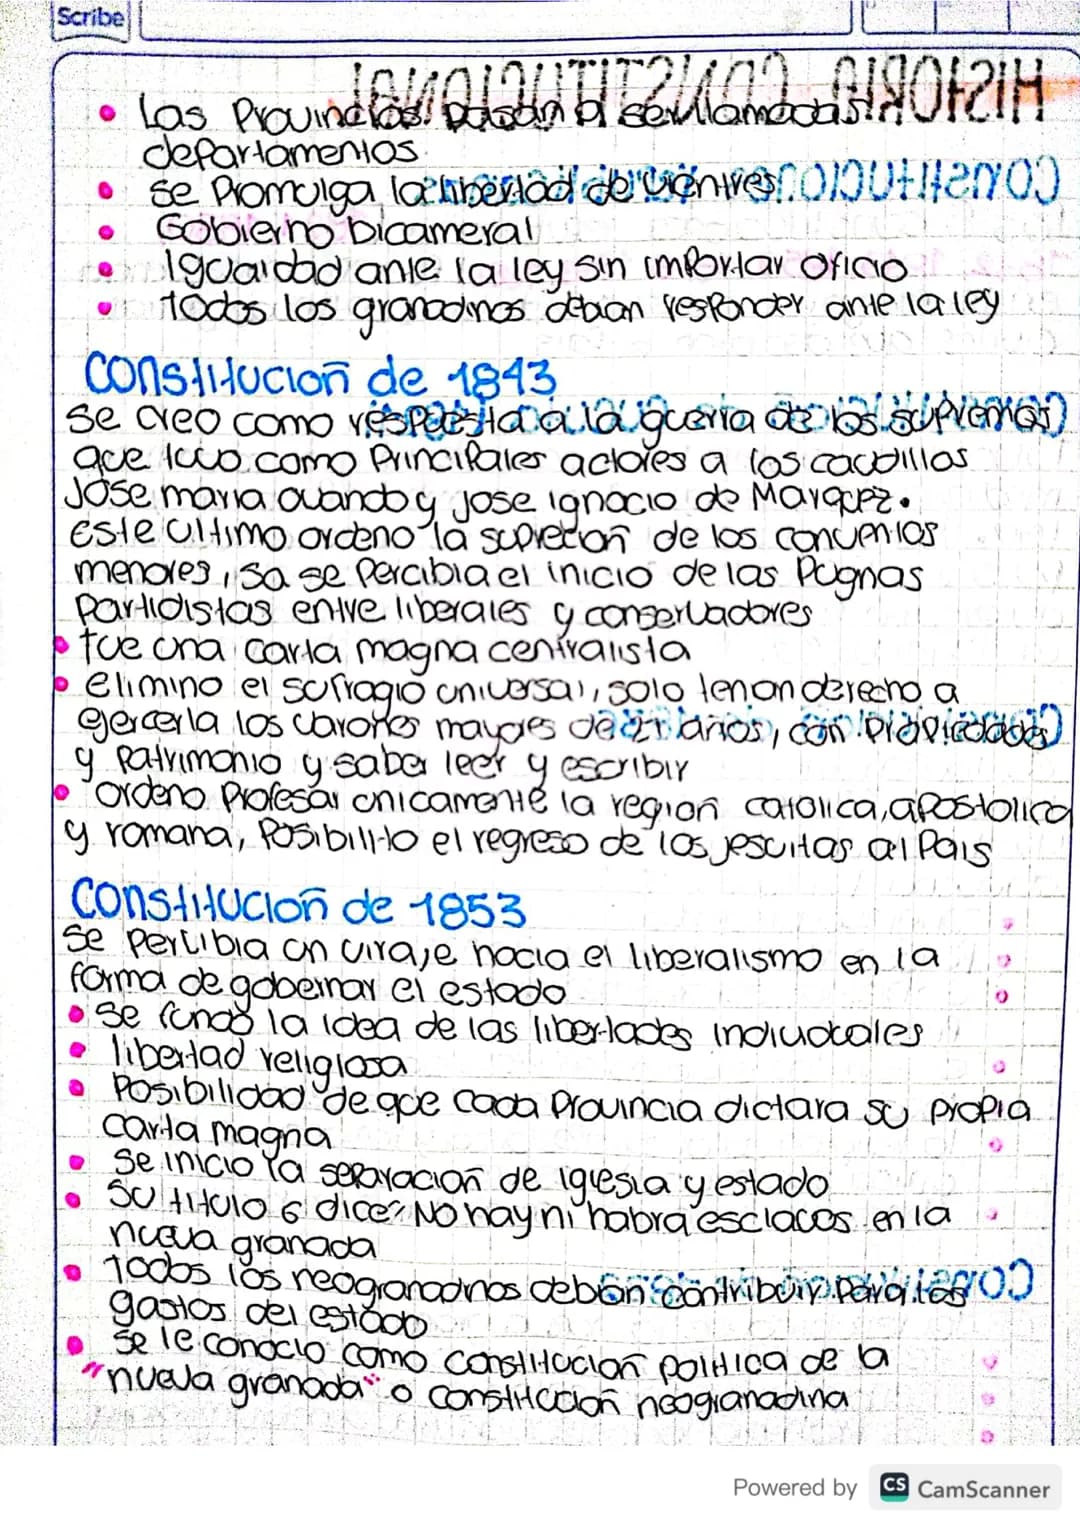 Scribe
• Las Provincias pasan a ser llamadas
departamentos
• Se Promulga la libertad de vientres
• Gobierno bicameral
• Igualdad ante la ley sin importar oficio
• todos los granadinos debian responder ante la ley
Constitucion de 1843
Se creo como respuesta a la guerra de los supremos
que tuvo como Principales actores a los caudillos
Jose maria ovando y jose ignacio de Marquez.
este ultimo ordeno la suprecion de los conventos
menores, sa se Percibia el inicio de las Pugnas
Partidistas entre liberales y conservadores
• fue una carta magna centralista
• elimino el sufragio universal, solo tenan derecho a
ejercerla los varones mayores de 21 años, con propiedades
y Patrimonio y saber leer y escribir
• ordeno Profesar unicamente la region catolica, apostolica
y romana, Posibilito el regreso de los jesuitas al Pais
Constitucion de 1853
Se percibia un viraje hacia el liberalismo en la
forma de gobernar el estado
• Se fundo la idea de las libertades individuales
• libertad religiosa
• Posibilidad de que cada Provincia dictara su propia
carta magna
• Se inicio la separacion de iglesia y estado
• Su titulo 6 dice: No hay ni habra esclavos en la
nueva granada
• todos los neogranadinos debian contribuir Para los
gastos del estado
• Se le conocio como constitucion politica de la
"nueva granada" o constitucion neogranadina
Powered by CS CamScanner